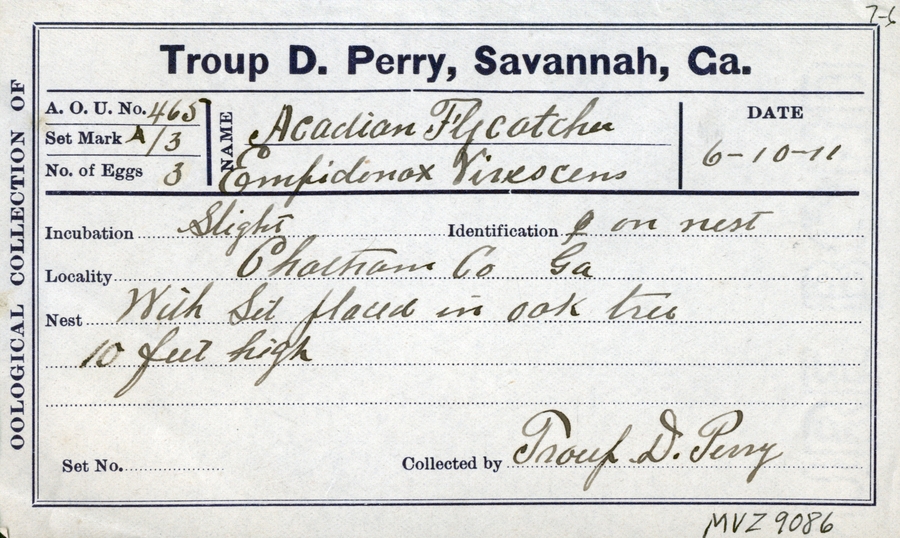 7-6
OOLOGICAL COLLECTION OF
Troup D. Perry, Savannah, Ga.
A. O. U. No. 465
Set Mark A/3
No. of Eggs 3
NAME
Acadian Flycatcher
Empidonax Virescens
DATE
6-10-11
Incubation Slight Identification ♀ on nest
Locality Chatham Co Ga
Nest With Set placed in oak tree
10 feet high
Set No. Collected by Troup D. Perry
MVZ 9086